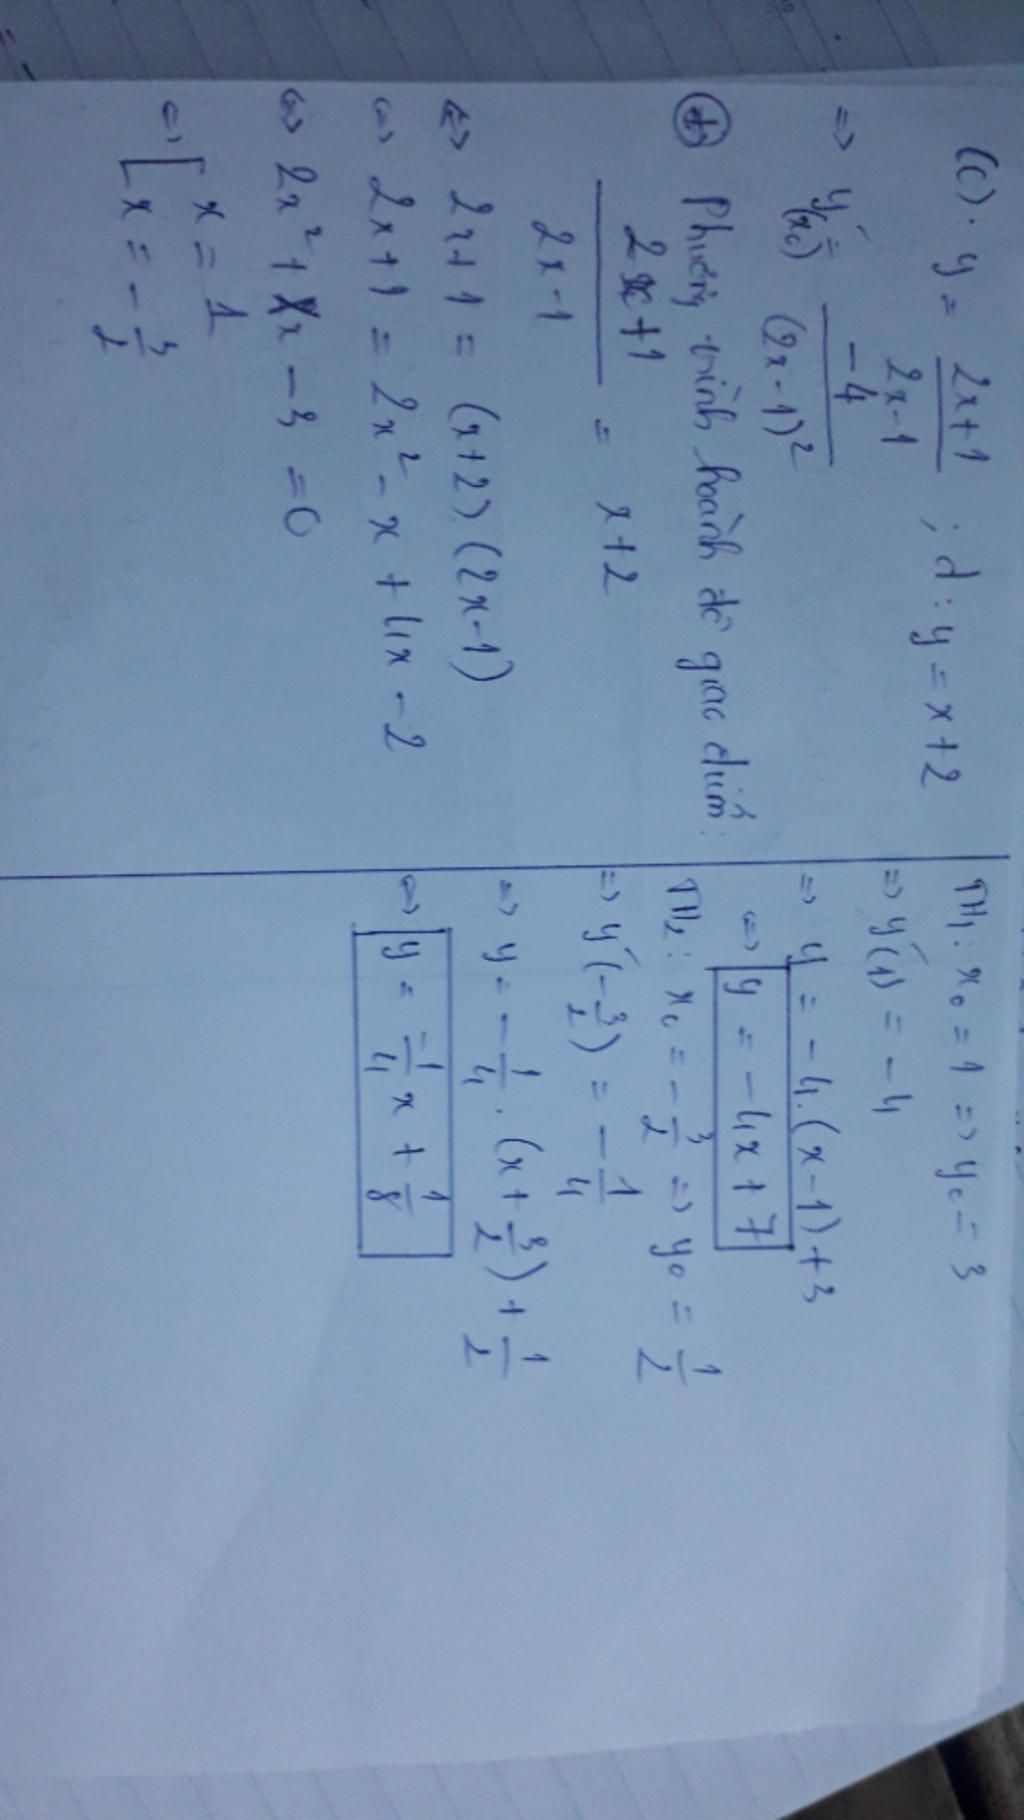 (C): y = (2x+1)/(2x-1) ; d: y = x+2
=> y'(x₀) = -4/(2x-1)²
⊕ Phương trình hoành độ giao điểm:
(2x+1)/(2x-1) = x+2
<=> 2x+1 = (x+2).(2x-1)
<=> 2x+1 = 2x² - x + 4x - 2
<=> 2x² + x - 3 = 0
<=> [ x = 1
[ x = -3/2
TH₁: x₀ = 1 => y₀ = 3
=> y'(1) = -4
=> y = -4.(x-1)+3
<=> y = -4x + 7
TH₂: x₀ = -3/2 => y₀ = 1/2
=> y'(-3/2) = -1/4
=> y = -1/4 . (x + 3/2) + 1/2
<=> y = -1/4 x + 1/8